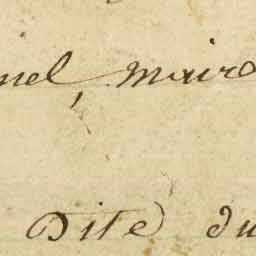 nel, maire
Dite du